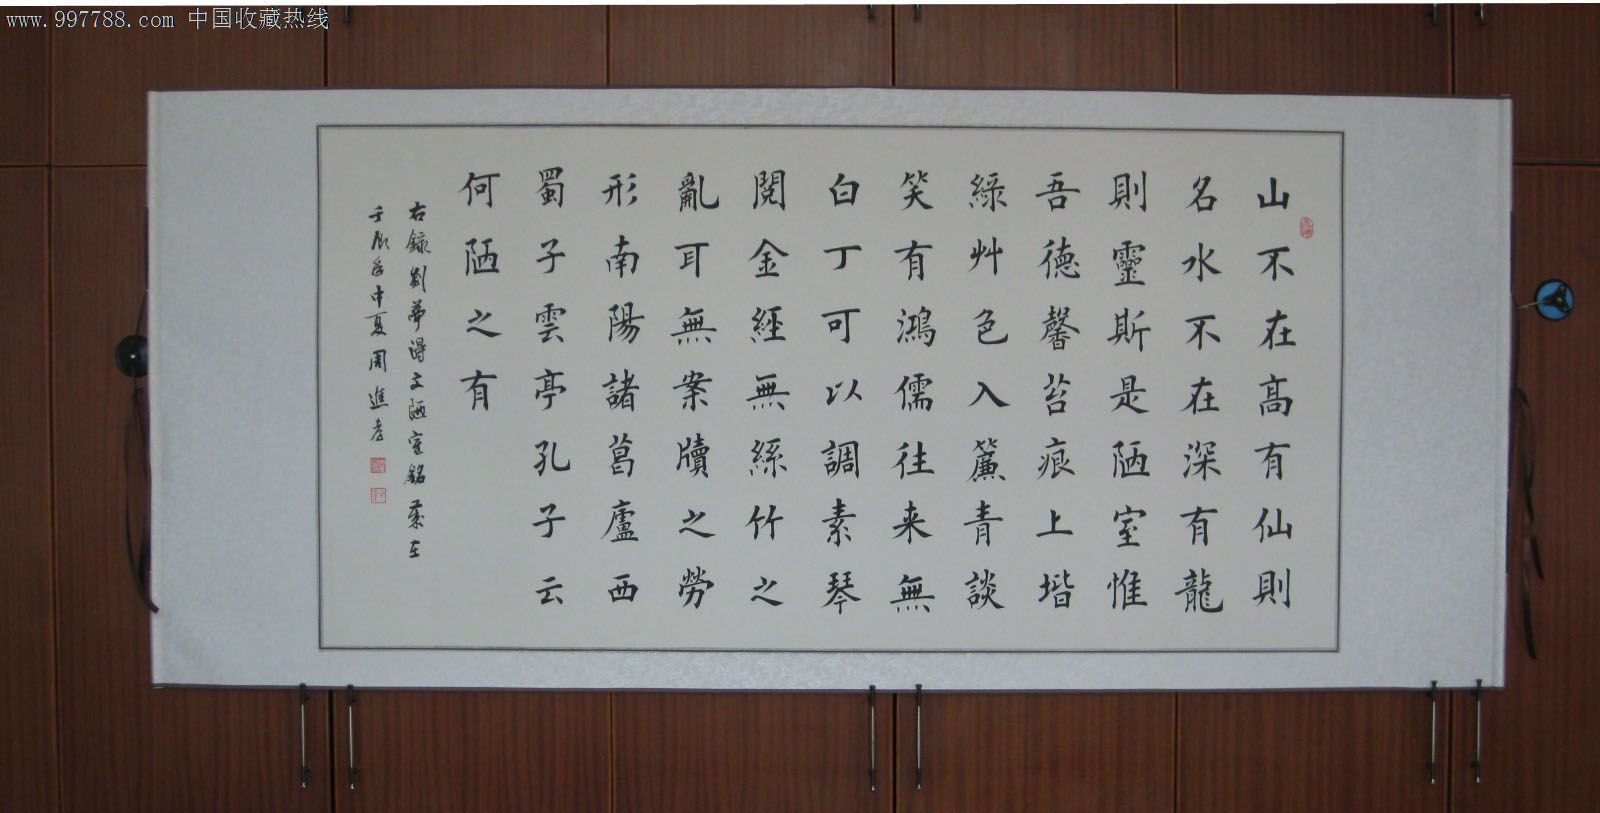 www.997788.com 中国收藏热线
山不在高有仙則
名水不在深有龍
則靈斯是陋室惟
吾德馨苔痕上堦
綠艸色入簾青談
笑有鴻儒往来無
白丁可以調素琴
閱金經無絲竹之
亂耳無案牘之勞
形南陽諸葛廬西
蜀子雲亭孔子云
何陋之有
右錄劉夢得文陋室銘
壬辰年中夏周進孝